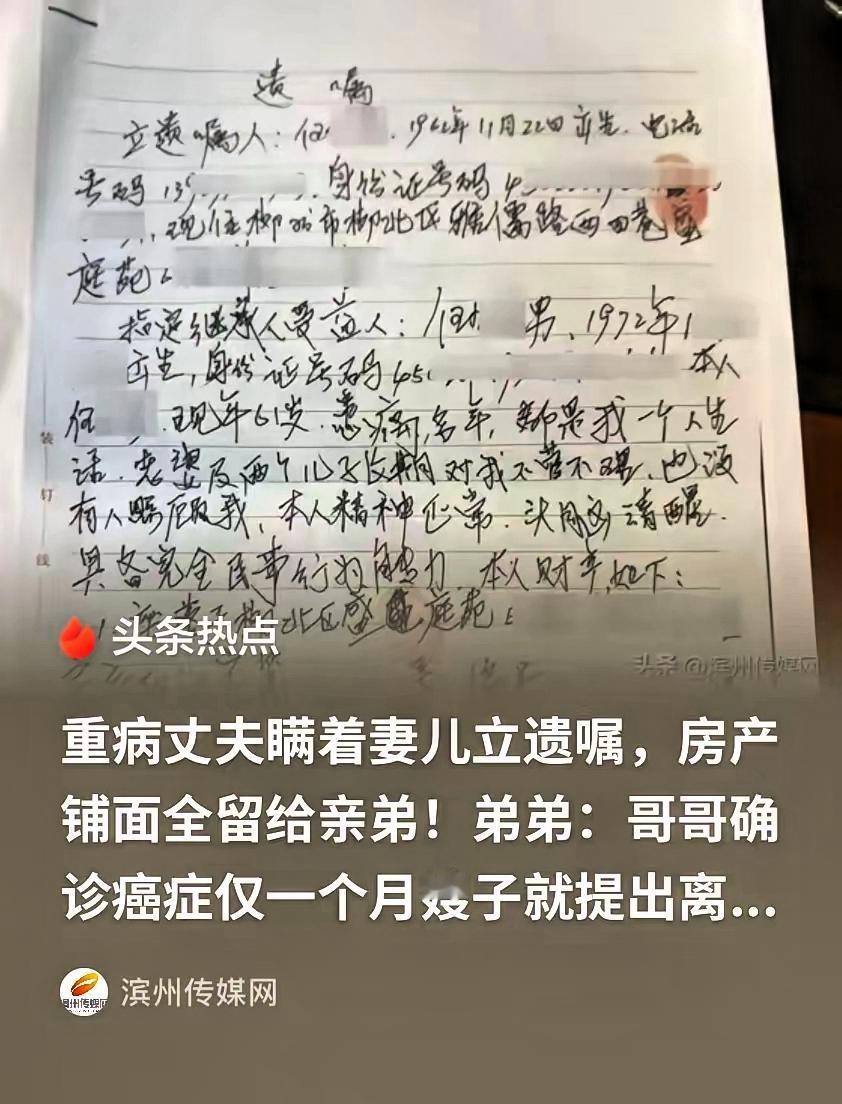 遗 嘱
立遗嘱人：何 ，1962年11月22日出生，电话
号码135 ，身份证号码4
，现住柳州市柳北区雅儒路西四巷盛
庭苑
指定继承人受益人：何 男、1972年1
出生，身份证号码45 本人
何 ，现年61岁，患病多年，都是我一个人生
活，老婆及两个儿子长期对我不管不理，也没
有人照顾我，本人精神正常，头脑清醒，
具备完全民事行为能力，本人财产如下：
柳北区盛 庭苑
装
钉
线
头条热点
头条 @滨州传媒网
重病丈夫瞒着妻儿立遗嘱，房产
铺面全留给亲弟！弟弟：哥哥确
诊癌症仅一个月嫂子就提出离...
滨州传媒网
滨州传媒网